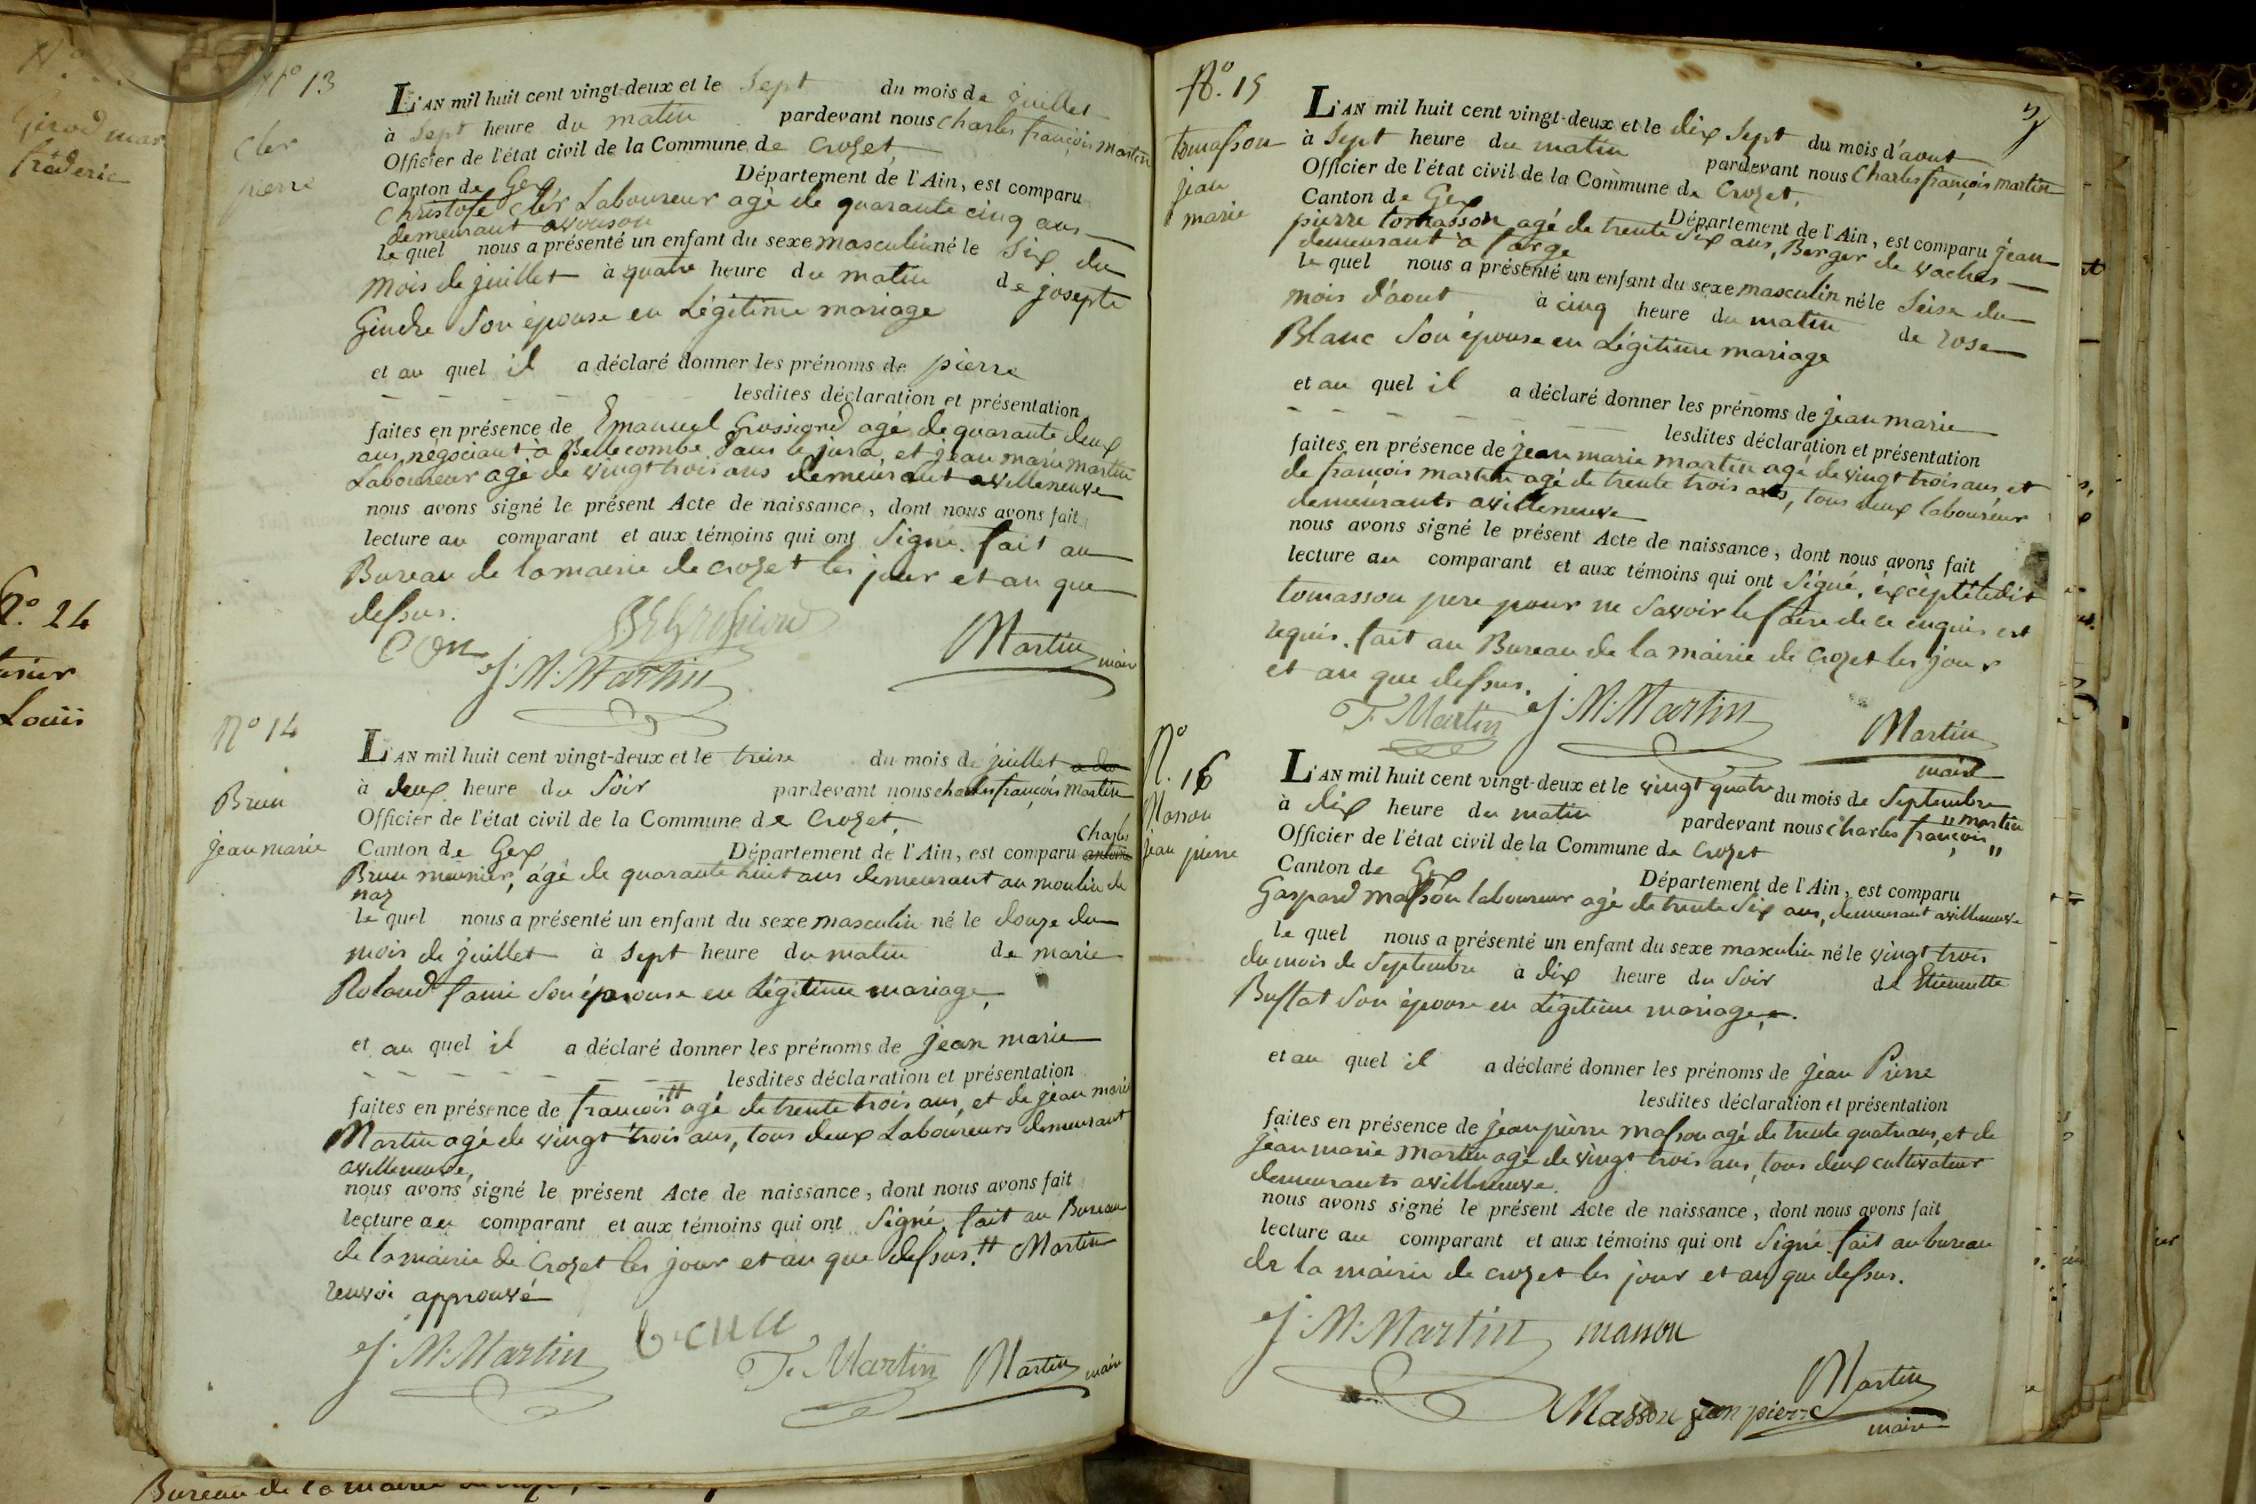 N° 13
Cler
pierre
L'AN mil huit cent vingt-deux et le Sept du mois de juillet
à Sept heure du matin pardevant nous charles françois martin
Officier de l'état civil de la Commune de Crozet,
Canton de Gex Département de l'Ain, est comparu
Christofe Clér Laboureur agé de quarante cinq ans
demeurant avouson
le quel nous a présenté un enfant du sexe masculin né le Six du
mois de juillet à quatre heure du matin de josepte
Gindre Son épouse en Légitime mariage
et au quel il a déclaré donner les prénoms de pierre
lesdites déclaration et présentation
faites en présence de Emanuel Grossiord agé de quarante deux
ans, négociant à Bellecombe dans le jura, et jean marie martin
Laboureur agé de vingt trois ans demeurant avilleneuve
nous avons signé le présent Acte de naissance, dont nous avons fait
lecture au comparant et aux témoins qui ont Signé. fait au
Bureau de la mairie de crozet les jour et an que
dessus.
J. M. Martin Martin maire
N° 14
Brun
jean marie
L'AN mil huit cent vingt-deux et le treize du mois de juillet
à deux heure du Soir pardevant nous charles françois martin
Officier de l'état civil de la Commune de Crozet,
Canton de Gex Département de l'Ain, est comparu charles
Brun meunier, agé de quarante huit ans demeurant au moulin de
naz
le quel nous a présenté un enfant du sexe masculin né le douze du
mois de juillet à Sept heure du matin de marie
Roland fanni Son épouse en Légitime mariage,
et au quel il a déclaré donner les prénoms de jean marie
lesdites déclaration et présentation
faites en présence de françois tt agé de trente trois ans, et de jean marie
Martin agé de vingt trois ans, tous deux Laboureurs demeurant
avilleneuve,
nous avons signé le présent Acte de naissance, dont nous avons fait
lecture au comparant et aux témoins qui ont Signé, fait au Bureau
de la mairie de Crozet les jour et an que dessus. tt Martin
renvoi approuvé
J. M. Martin brun F. Martin Martin maire
N°. 15
tomasson
jean
marie
L'AN mil huit cent vingt-deux et le dix Sept du mois d'aout
à Sept heure du matin pardevant nous Charles françois martin
Officier de l'état civil de la Commune de Crozet,
Canton de Gex Département de l'Ain, est comparu jean
pierre tomasson agé de trente Six ans, Berger de vaches
demeurant à farge
le quel nous a présenté un enfant du sexe masculin né le Seise du
mois d'aout à cinq heure du matin de rose
Blanc Son épouse en Légitime mariage
et au quel il a déclaré donner les prénoms de jean marie
lesdites déclaration et présentation
faites en présence de jean marie martin agé de vingt trois ans, et
de françois martin agé de trente trois ans, tous deux laboureur
demeurants avilleneuve
nous avons signé le présent Acte de naissance, dont nous avons fait
lecture au comparant et aux témoins qui ont Signé, éxcèpté ledit
tomasson pere pour ne Savoir le faire de ce enquis et
requis. fait au Bureau de la mairie de Crozet les jour
et an que dessus.
F. Martin J. M. Martin Martin
maire
N°. 16
Masson
jean pierre
L'AN mil huit cent vingt-deux et le vingt quatre du mois de Septembre
à dix heure du matin pardevant nous charles françois " martin "
Officier de l'état civil de la Commune de Crozet
Canton de Gex Département de l'Ain, est comparu
Gaspard masson laboureur agé de trente Six ans, demeurant avilleneuve
le quel nous a présenté un enfant du sexe masculin né le vingt trois
du mois de Septembre à dix heure du Soir de Etiennette
Buffat Son épouse en Légitime mariage.
et au quel il a déclaré donner les prénoms de jean Pierre
lesdites déclaration et présentation
faites en présence de jean pièrre masson agé de trente quatre ans, et de
jean marie martin agé de vingt trois ans, tous deux cultivateur
demeurants avilleneuve.
nous avons signé le présent Acte de naissance, dont nous avons fait
lecture au comparant et aux témoins qui ont Signé. fait au bureau
de la mairie de crozet les jour et an que dessus.
J. M. Martin masson
Martin
Masson jean pierre maire
Girod
fréderic
N°. 24
Louis
Bureau de la mairie